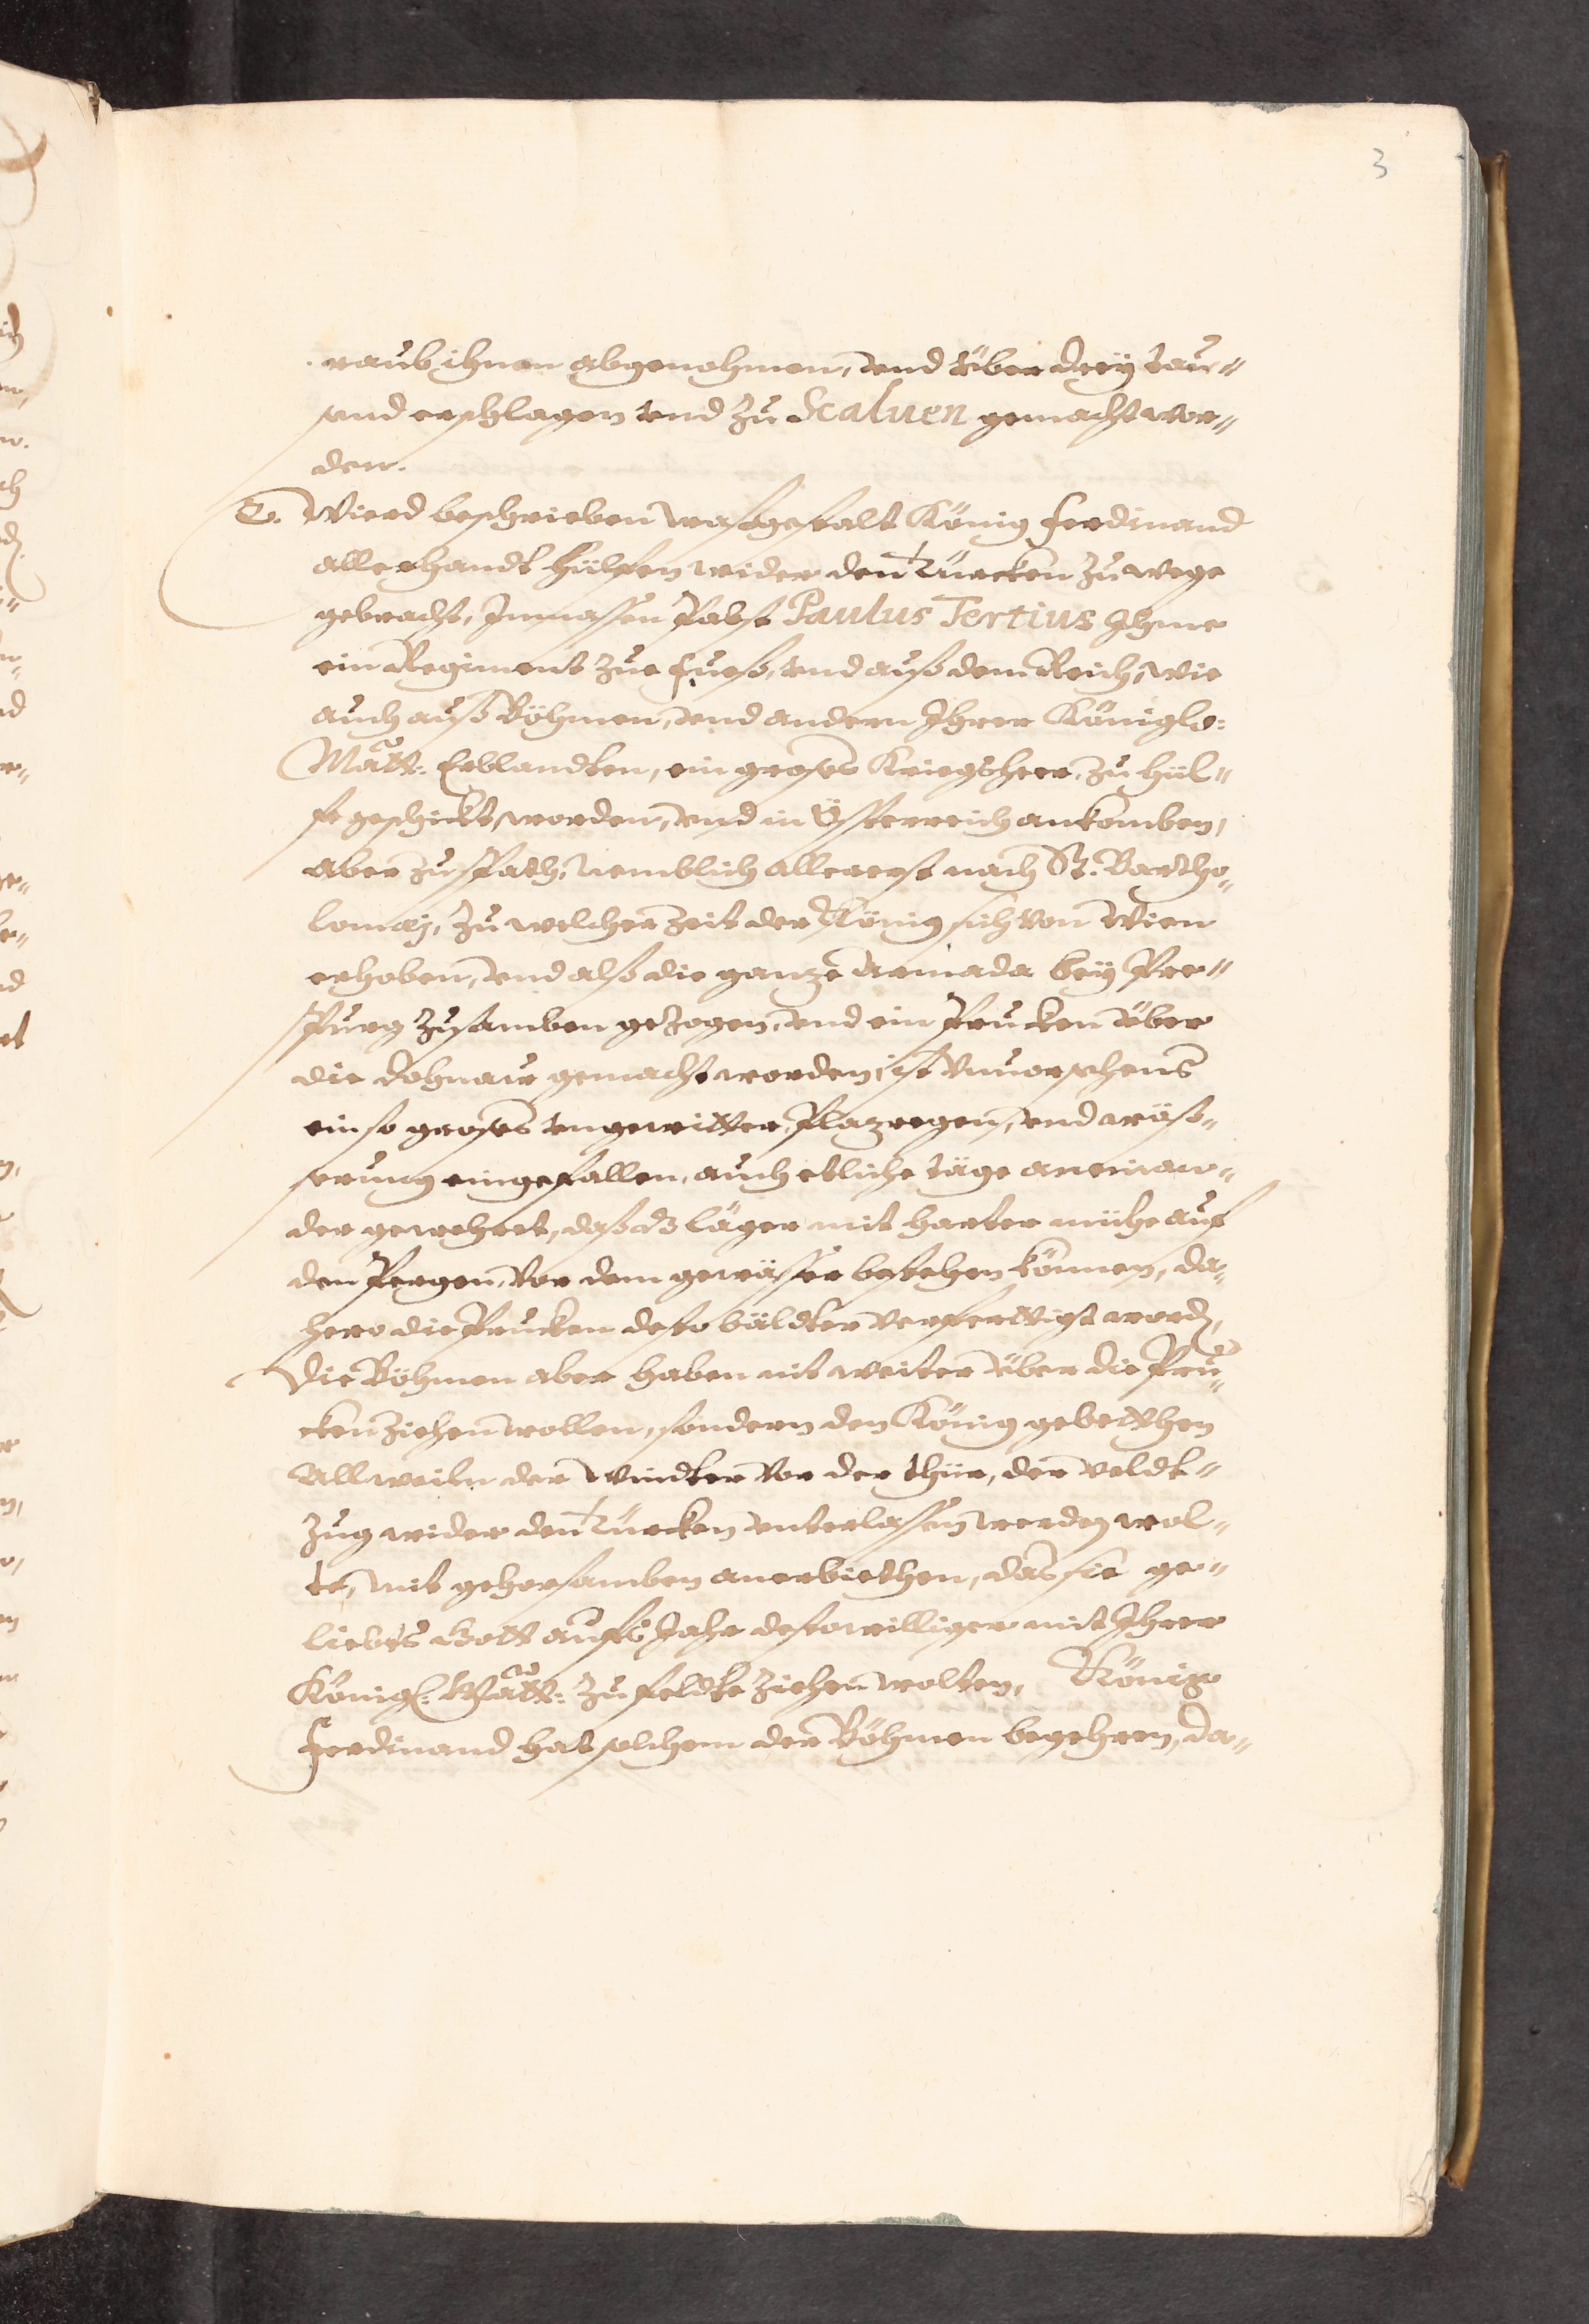 3
raub ihnen abgenohmen, vnd über dreÿ tau¬
sendt erschlagen vnd zu Scaluen gemacht wor¬
den.
C. Wierd beschrieben wasgestalt König Ferdinand
allerhandt hülffen wider den Türcken zu wege
gebracht, Inmassen Pabst Paulus Tertius Ihme
ein Regiment zue Fueß, vnd auß dem Reich, wie
auch auß Böhmen, vnd andern Ihrer Königlr:
Maÿtt: Erblandten, ein großes Kriegsheer, zu hül¬
fe geschickt, worden, vnd in Össterreich ankomben,
aber zu spath, Nemblich allererst nach St. Bartho¬
lomæj, zu welcher zeit der König sich von Wien
erhoben, vnd also die ganze Armada beÿ Pre¬
spurg zusamben gezogen, vnd ein Prucken über
die Dohnaw gemacht worden, ist vnuersehens
ein so großes vngewitter, Plazregen, vnd wäss¬
serung eingefallen, auch etliche täge aneinan¬
der gewehret, daß dz läger mit harter mühe auf
den Pergen, vor dem gewässer bestehen können, da¬
hero die Prucken desto bäldter verferttigt word,
Die Böhmen aber haben nit weiter über die Pru¬
cken ziehen wollen, sondern den König gebetthen
Allweiln der Windter vor der thür, der veldt¬
zug wider den Türcken vnterlassen werden wol¬
te, mit gehorsamben anerbiethen, das sie ge¬
liebts Gott aufs Jahr destowilliger mit Ihrer
Königl: Maÿtt: zu feldte ziehen wolten, König
Ferdinand hat solchem der Böhmen begehren, da¬